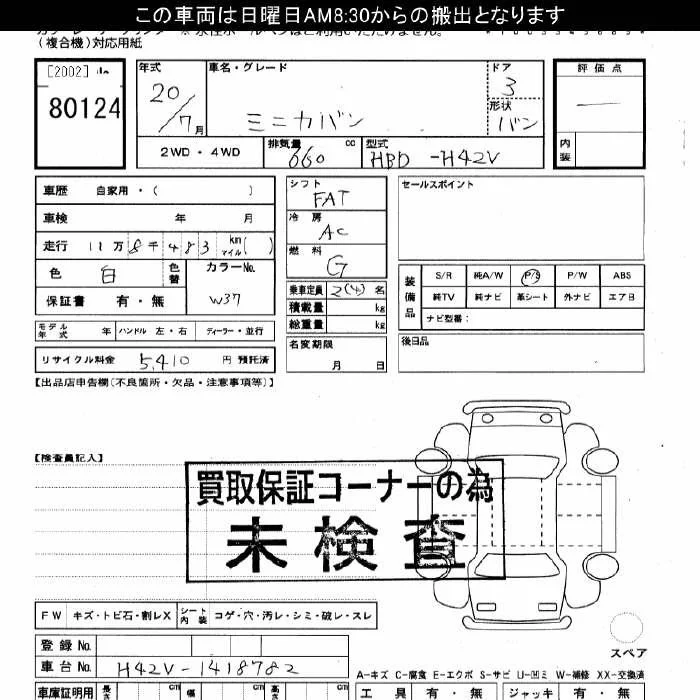 この車両は日曜日AM8:30からの搬出となります
(複合機)対応用紙
[2002]
80124
年式 20/7月
車名・グレード ミニカバン
ドア 3
形状 バン
評価点 —
内装
2WD・4WD
排気量 660 cc
型式 HBD-H42V
車歴 自家用・( )
車検 年 月
走行 11万8千483 km マイル( )
色 白 色替 カラーNo. W37
保証書 有・無
モデル年式 年 ハンドル 左・右 ディーラー・並行
リサイクル料金 5,410 円 預託済
シフト FAT
冷房 AC
燃料 G
乗車定員 2(4) 名
積載量 kg
総重量 kg
名変期限 月 日
セールスポイント
装備品 S/R 純A/W P/S P/W ABS
純TV 純ナビ 革シート 外ナビ エアB
ナビ型番:
後日品
【出品店申告欄(不良箇所・欠品・注意事項等)】
【検査員記入】
買取保証コーナーの為
未検査
FW キズ・トビ石・割レX シート内装 コゲ・穴・汚レ・シミ・破レ・スレ
登録No.
車台No. H42V-1418782
スペア
A-キズ C-腐食 E-エクボ S-サビ U-凹ミ W-補修 XX-交換済
車庫証明用 長さ cm 幅 cm 高さ cm
工具 有・無 ジャッキ 有・無